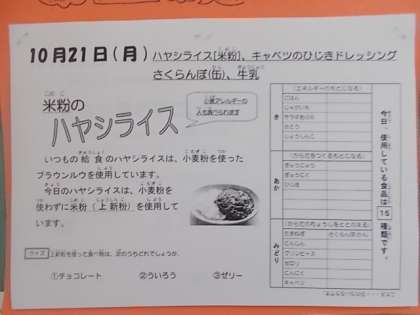 10月21日(月) ハヤシライス[米粉]、キャベツのひじきドレッシング
さくらんぼ(缶)、牛乳
米粉の
ハヤシライス
小麦アレルギーの
人も食べられます
いつもの給食のハヤシライスは、小麦粉を使った
ブラウンルウを使用しています。
今日のハヤシライスは、小麦粉を
使わずに米粉(上新粉)を使用して
います。
クイズ 上新粉を使った食べ物は、次のうちどれでしょうか。
①チョコレート ②ういろう ③ゼリー
今日、使用している食品は15種類です。
き
(エネルギーのもとになる)
ごはん
じゃがいも
さとう
じょうしんこ
あか
(からだをつくるもとになる)
ぎゅうにく
ひじき
みどり
(からだのちょうしをととのえる)
たまねぎ さくらんぼかん
にんじん
グリンピース
セロリ
にんにく
キャベツ